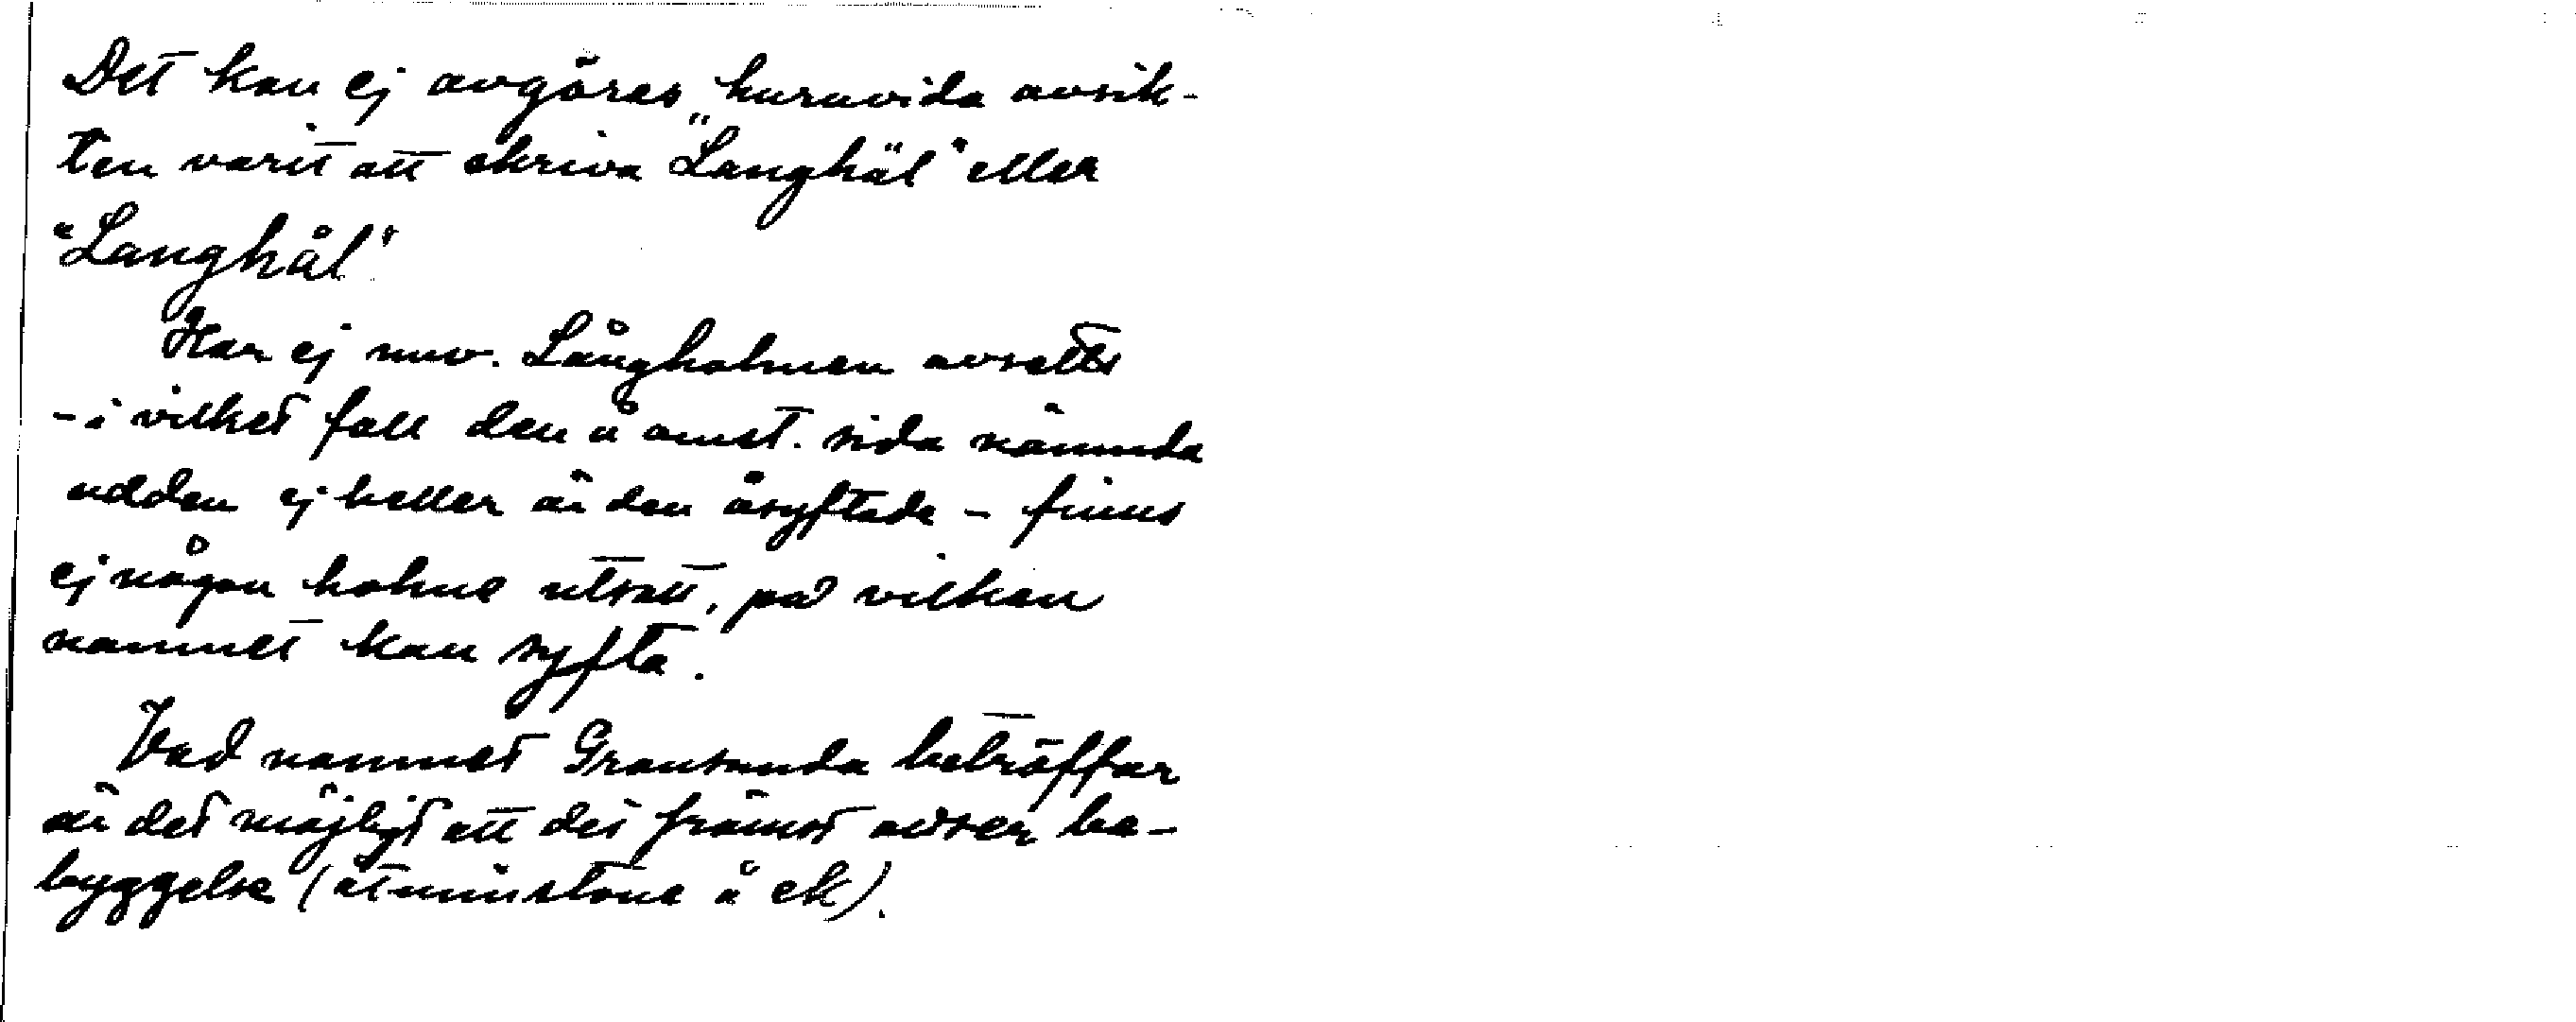 Det kan ej avgöras, huruvida avsik-
ten varit att skriva "Langhäl" eller
"Langhål"
Har ej nuv. Långholmen avsetts
- i vilket fall den å omst. sida nämnda
udden ej heller är den åsyftade - finns
ej någon holme utsatt, på vilken
namnet kan syfta.
Vad namnet Gransunda beträffar
är det möjligt att det främst avser be-
byggelse (åtminstone å ek).